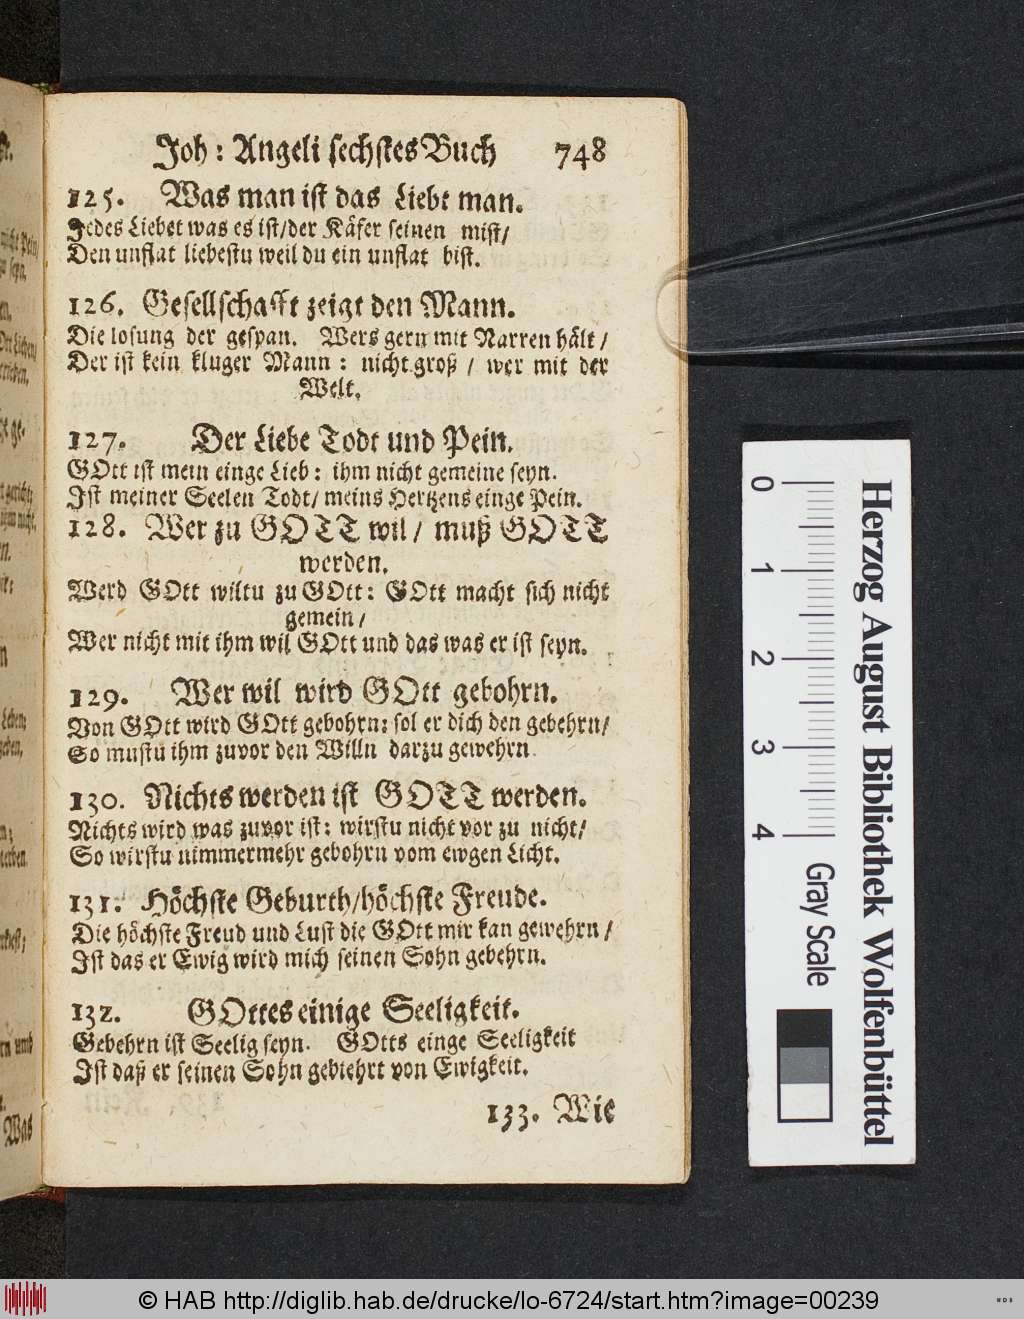 Joh: Angeli sechstes Buch 748
125. Was man ist das Liebt man.
Jedes Liebet was es ist/der Käfer seinen mist/
Den unflat liebestu weil du ein unflat bist.
126. Gesellschafft zeigt den Mann.
Die losung der gespan. Wers gern mit Narren hält/
Der ist kein kluger Mann: nicht groß/ wer mit der
Welt.
127. Der Liebe Todt und Pein.
GOtt ist mein einge Lieb: ihm nicht gemeine seyn.
Ist meiner Seelen Todt/ meins Hertzens einge Pein.
128. Wer zu GOTT wil/ muß GOTT
werden.
Werd GOtt wiltu zu GOtt: GOtt macht sich nicht
gemein/
Wer nicht mit ihm wil GOtt und das was er ist seyn.
129. Wer wil wird GOtt gebohrn.
Von GOtt wird GOtt gebohrn: sol er dich den gebehrn/
So mustu ihm zuvor den Willn darzu gewehrn
130. Nichts werden ist GOTT werden.
Nichts wird was zuvor ist: wirstu nicht vor zu nicht/
So wirstu nimmermehr gebohrn vom ewgen Licht.
131. Höchste Geburth/höchste Freude.
Die höchste Freud und Lust die GOtt mir kan gewehrn/
Ist das er Ewig wird mich seinen Sohn gebehrn.
132. GOttes einige Seeligkeit.
Gebehrn ist Seelig seyn. GOtts einge Seeligkeit
Ist daß er seinen Sohn gebiehrt von Ewigkeit.
133. Wie
Was
0 1 2 3 4
Gray Scale
Herzog August Bibliothek Wolfenbüttel
© HAB http://diglib.hab.de/drucke/lo-6724/start.htm?image=00239